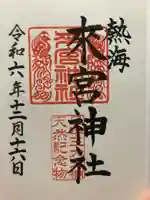 熱海
來宮神社
令和六年十二月十六日
來宮神社
天然記念物